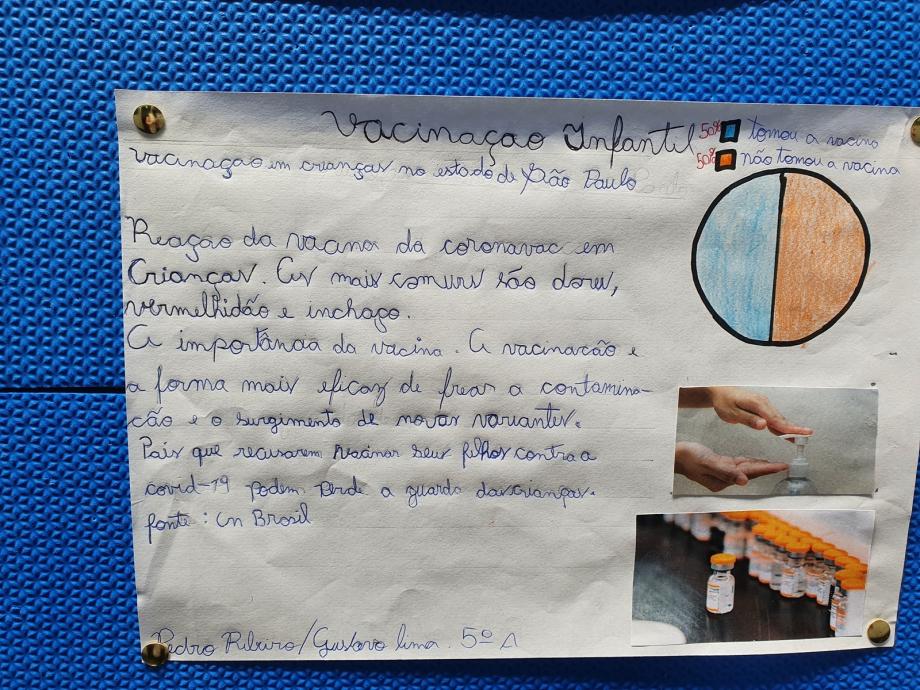 Vacinaçao Infantil
50% tomou a vacina
50% não tomou a vacina
Vacinaçao em crianças no estado de São Paulo
Reação da vacina da coronavac em
Crianças. As mais comuns são dores,
vermelhidão e inchaço.
A importância da vacina. A vacinacão e
a forma mais eficaz de frear a contamina-
cão e o surgimento de novas variantes.
Pais que recusarem vacinar seus filhos contra a
covid-19 podem perde a guarda das crianças.
fonte: Cn Brasil
Pedro Ribeiro/Gustavo lima. 5º A